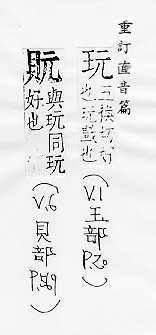 重訂直音篇
玩 五換切
也玩
(V.1 王部 P.20)
貦 與玩同玩
好也
(V.6 貝部 P.59)